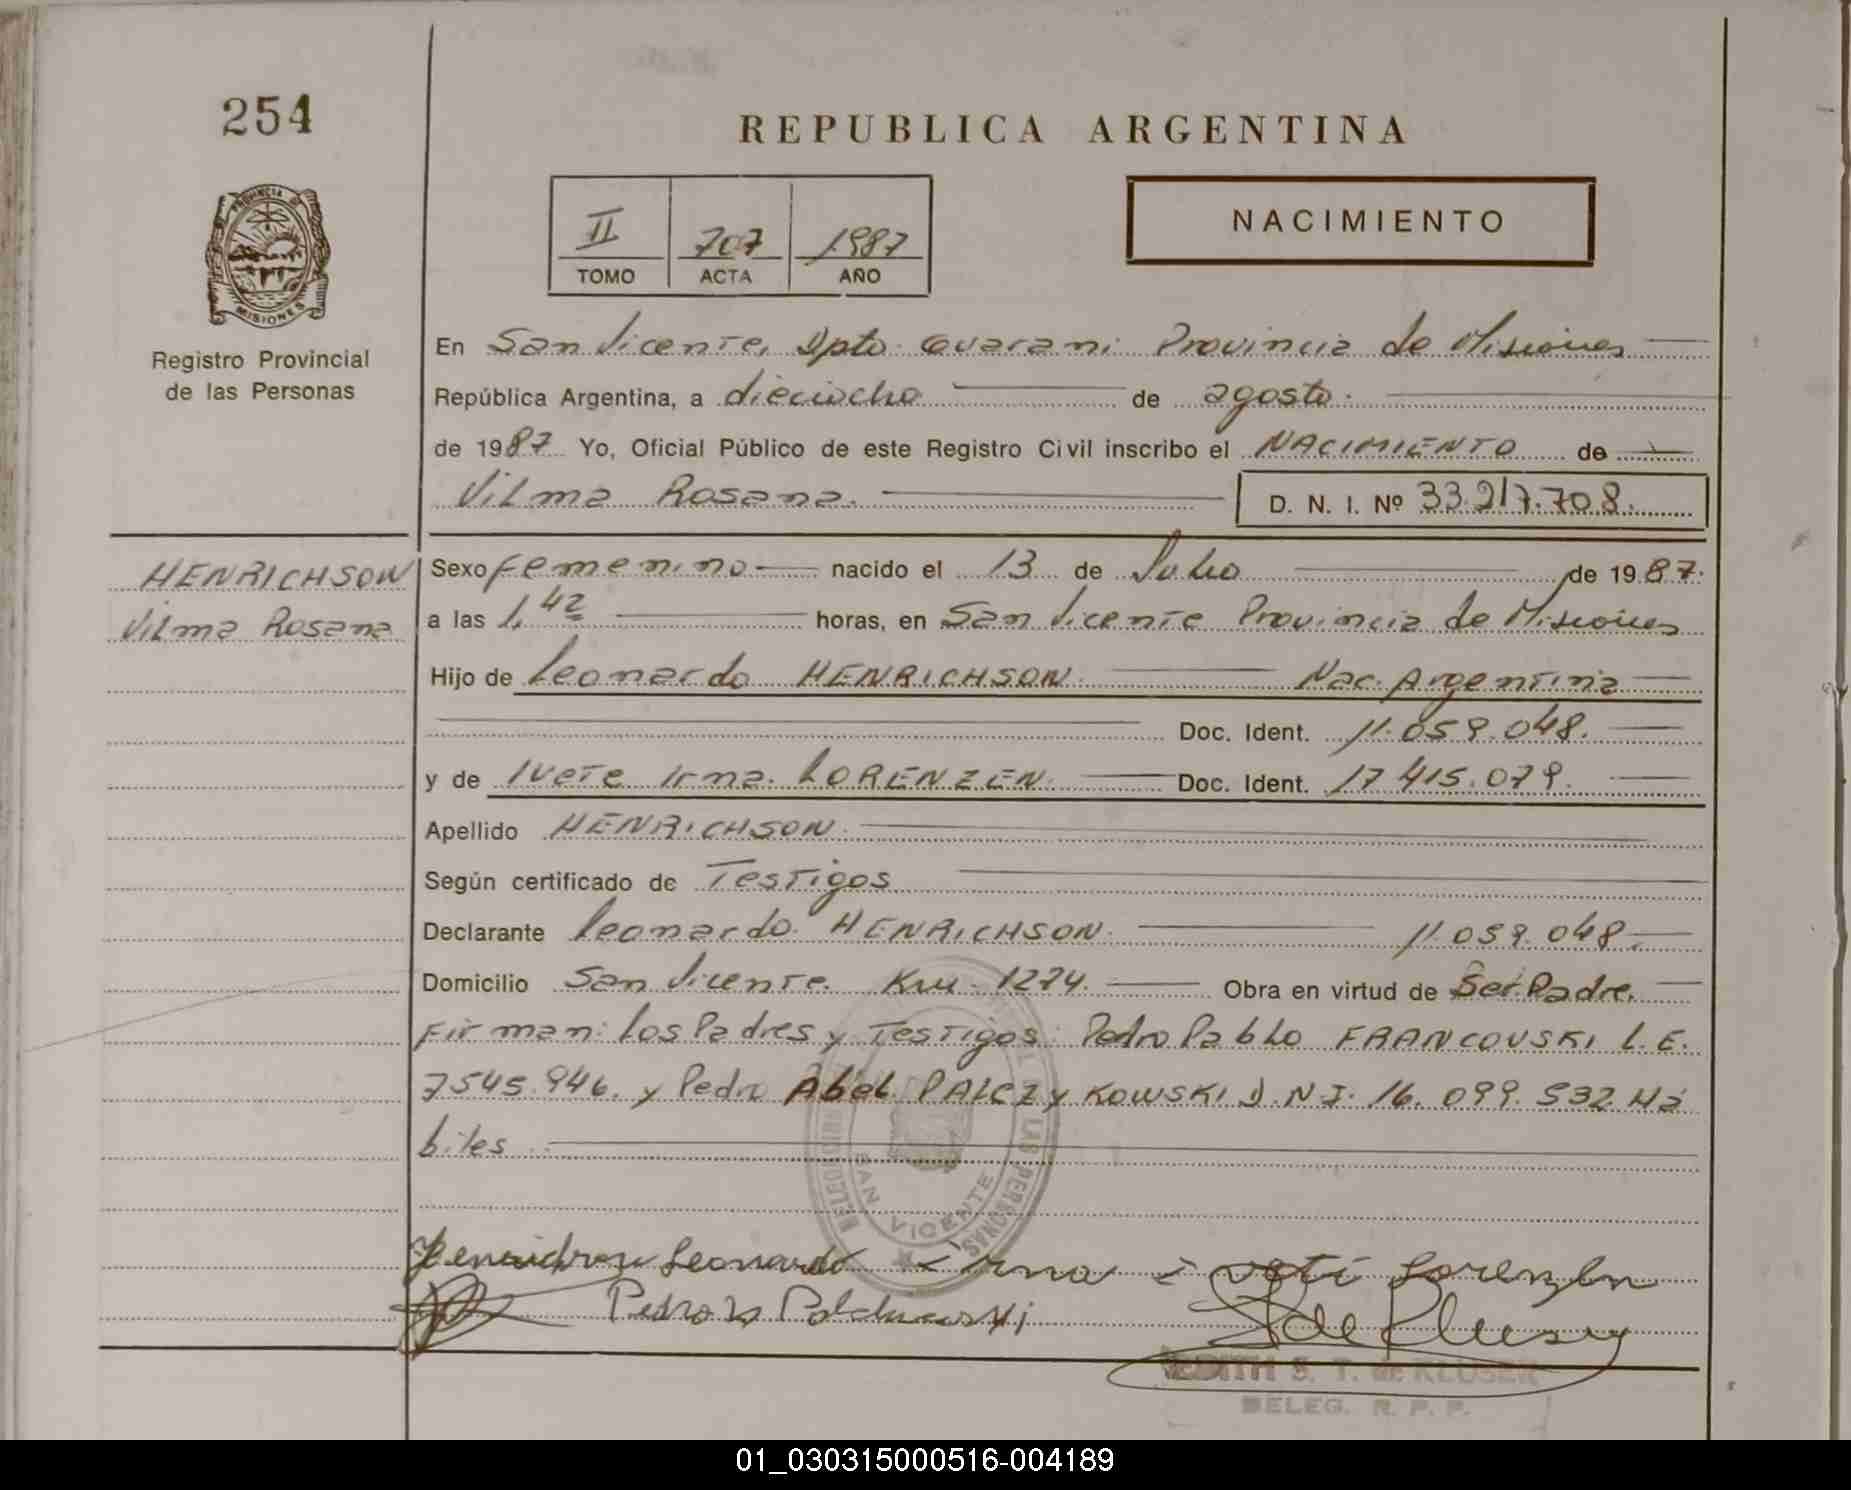 254
REPUBLICA ARGENTINA
PROVINCIA DE
MISIONES
Registro Provincial
de las Personas
II 707 1987
TOMO ACTA AÑO
NACIMIENTO
En San Vicente, Dpto. Guarani Provincia de Misiones
República Argentina, a dieciocho de agosto.
de 1987 Yo, Oficial Público de este Registro Civil inscribo el NACIMIENTO de
Vilma Rosana. D. N. I. Nº 33.217.708.
HENRICHSON
Vilma Rosana
Sexo femenino nacido el 13 de Julio de 1987.
a las 1,42 horas, en San Vicente Provincia de Misiones
Hijo de Leonardo HENRICHSON. Nac. Argentina
Doc. Ident. 11.059.048.
y de Ivete Irma. LORENZEN. Doc. Ident. 17.415.079.
Apellido HENRICHSON.
Según certificado de Testigos
Declarante Leonardo HENRICHSON. 11.059.048.
Domicilio San Vicente. Km. 1274. Obra en virtud de Ser Padre.
Firman: los Padres y Testigos: Pedro Pablo FRANCOUSKI L.E.
7545.946. y Pedro Abel PALCZYKOWSKI D.N.I. 16.099.532 Há
biles.
SAN VICENTE
LAS PERSONAS
Leonardo Irma Lorenzen
Pedro
EDITH S. T. de KLUSER
DELEG. R. P. P.
01_030315000516-004189